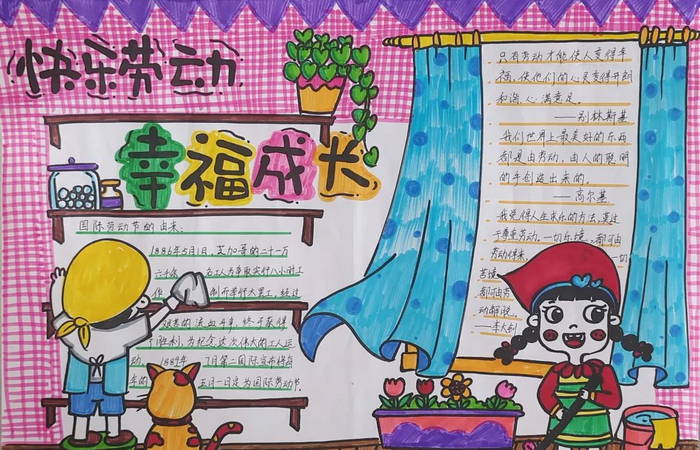 快乐劳动
幸福成长
国际劳动节的由来:
1886年5月1日,芝加哥的二十一万
六千余名工人为争取实行八小时工
作制而举行大罢工,经过
艰苦的流血斗争,终于获得
了胜利,为纪念这次伟大的工人运
动,1889年7月第二国际宣布将每
年的五月一日定为国际劳动节。
只有劳动才能使人变得幸
福,使他们的心灵变得开朗
和谐,心满意足。
——别林斯基
我们世界上最美好的东西
都是由劳动、由人的聪明
的手创造出来的。
——高尔基
我觉得人生求乐的方法,莫过
于尊重劳动。一切乐境,都可由
劳动得来,一切
苦境
都可由劳
动解脱。
——李大钊